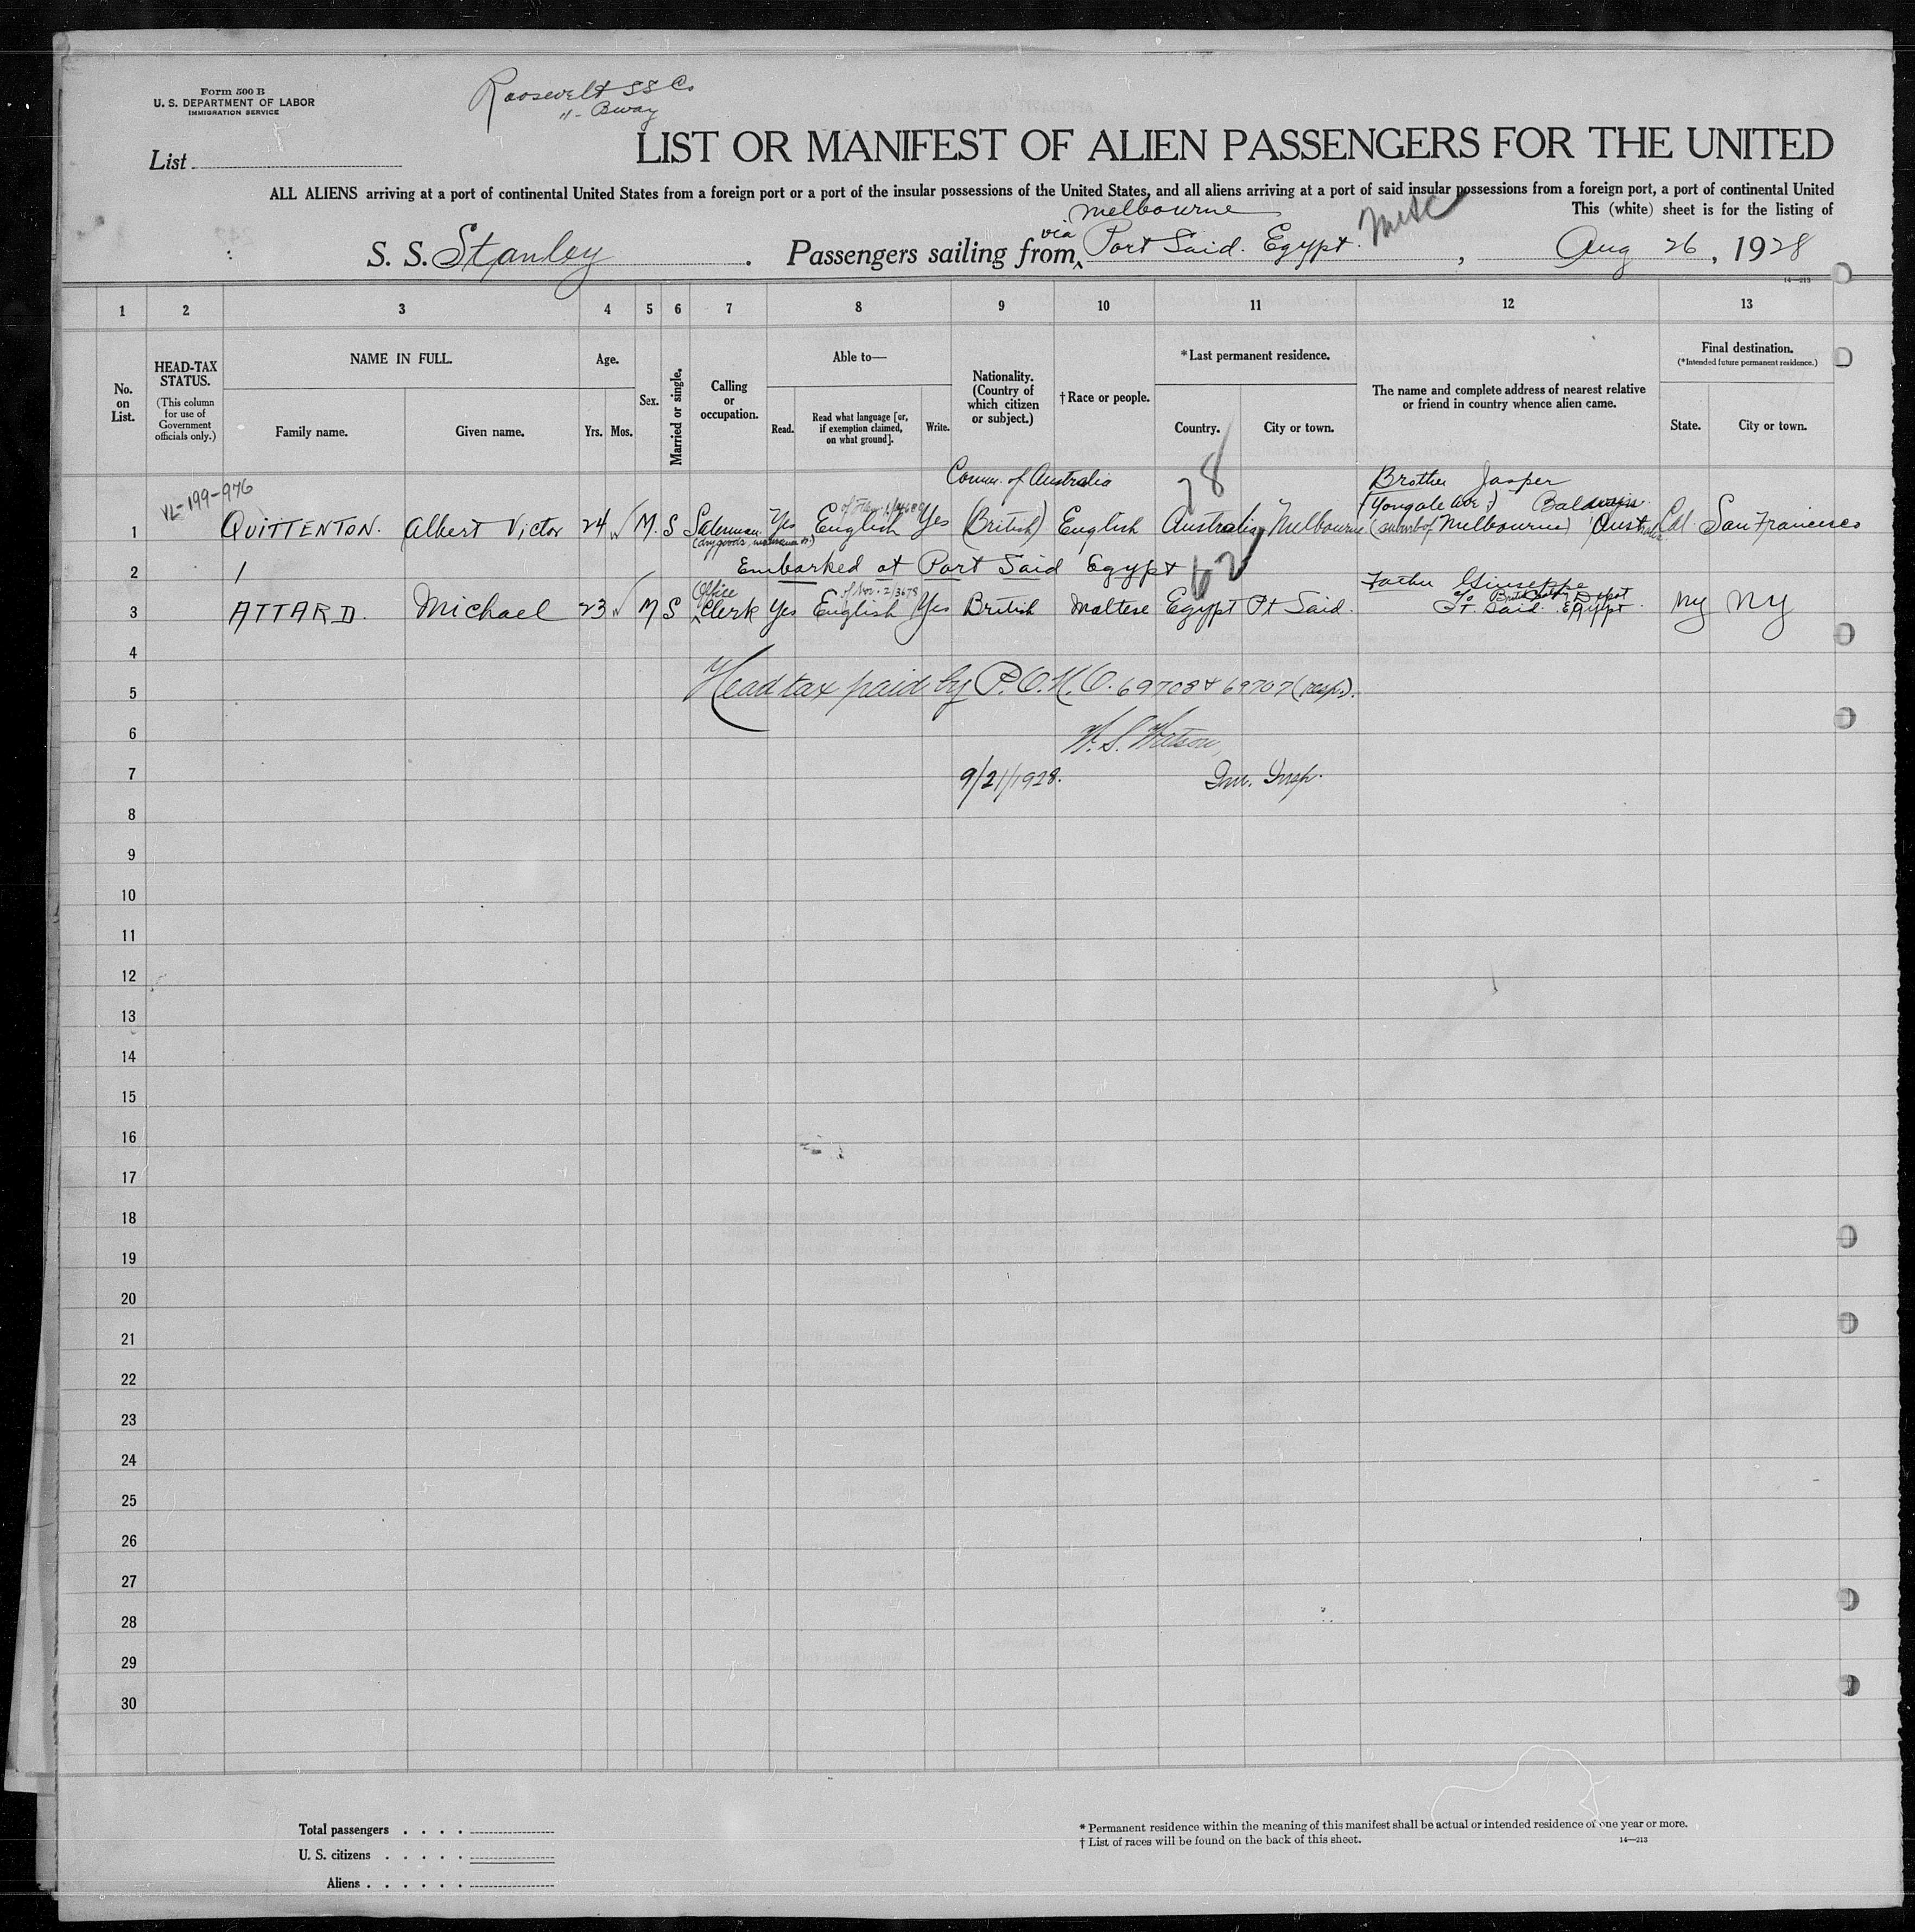 Form 500 B
U. S. DEPARTMENT OF LABOR
IMMIGRATION SERVICE
Roosevelt SS Co
11- Bway
List
LIST OR MANIFEST OF ALIEN PASSENGERS FOR THE UNITED
ALL ALIENS arriving at a port of continental United States from a foreign port or a port of the insular possessions of the United States, and all aliens arriving at a port of said insular possessions from a foreign port, a port of continental United
This (white) sheet is for the listing of
Melbourne
S. S. Stanley . Passengers sailing from via Port Said. Egypt. , Aug 26, 1928
14—213
1 2 3 4 5 6 7 8 9 10 11 12 13
No. on List.
HEAD-TAX STATUS.
(This column for use of Government officials only.)
NAME IN FULL.
Family name. Given name.
Age.
Yrs. Mos.
Sex.
Married or single.
Calling or occupation.
Able to—
Read.
Read what language [or, if exemption claimed, on what ground].
Write.
Nationality. (Country of which citizen or subject.)
†Race or people.
*Last permanent residence.
Country. City or town.
The name and complete address of nearest relative or friend in country whence alien came.
Final destination.
(*Intended future permanent residence.)
State. City or town.
78
VL-199-976
Comm. of Australia
Brother Jasper
(Yongale Ave.)
1 QUITTENTON. Albert Victor 24 M. S Salesman Yes English Yes (British) English Australia Melbourne (suburb of Melbourne) Australia Cal. San Francisco
2 1 Embarked at Port Said Egypt
62
Office
Father Giuseppe
3 ATTARD. Michael 23 M S Clerk Yes English Yes British Maltese Egypt Pt Said. Pt. Said. Egypt. NY NY
4
5 Head tax paid by P.O.N.O. 69708 & 69707 (resp.).
6 W. S. Watson,
7 9/21/1928. Imm. Insp.
8
9
10
11
12
13
14
15
16
17
18
19
20
21
22
23
24
25
26
27
28
29
30
Total passengers . . . .
U. S. citizens . . . . .
Aliens . . . . . .
* Permanent residence within the meaning of this manifest shall be actual or intended residence of one year or more.
† List of races will be found on the back of this sheet.
14—213